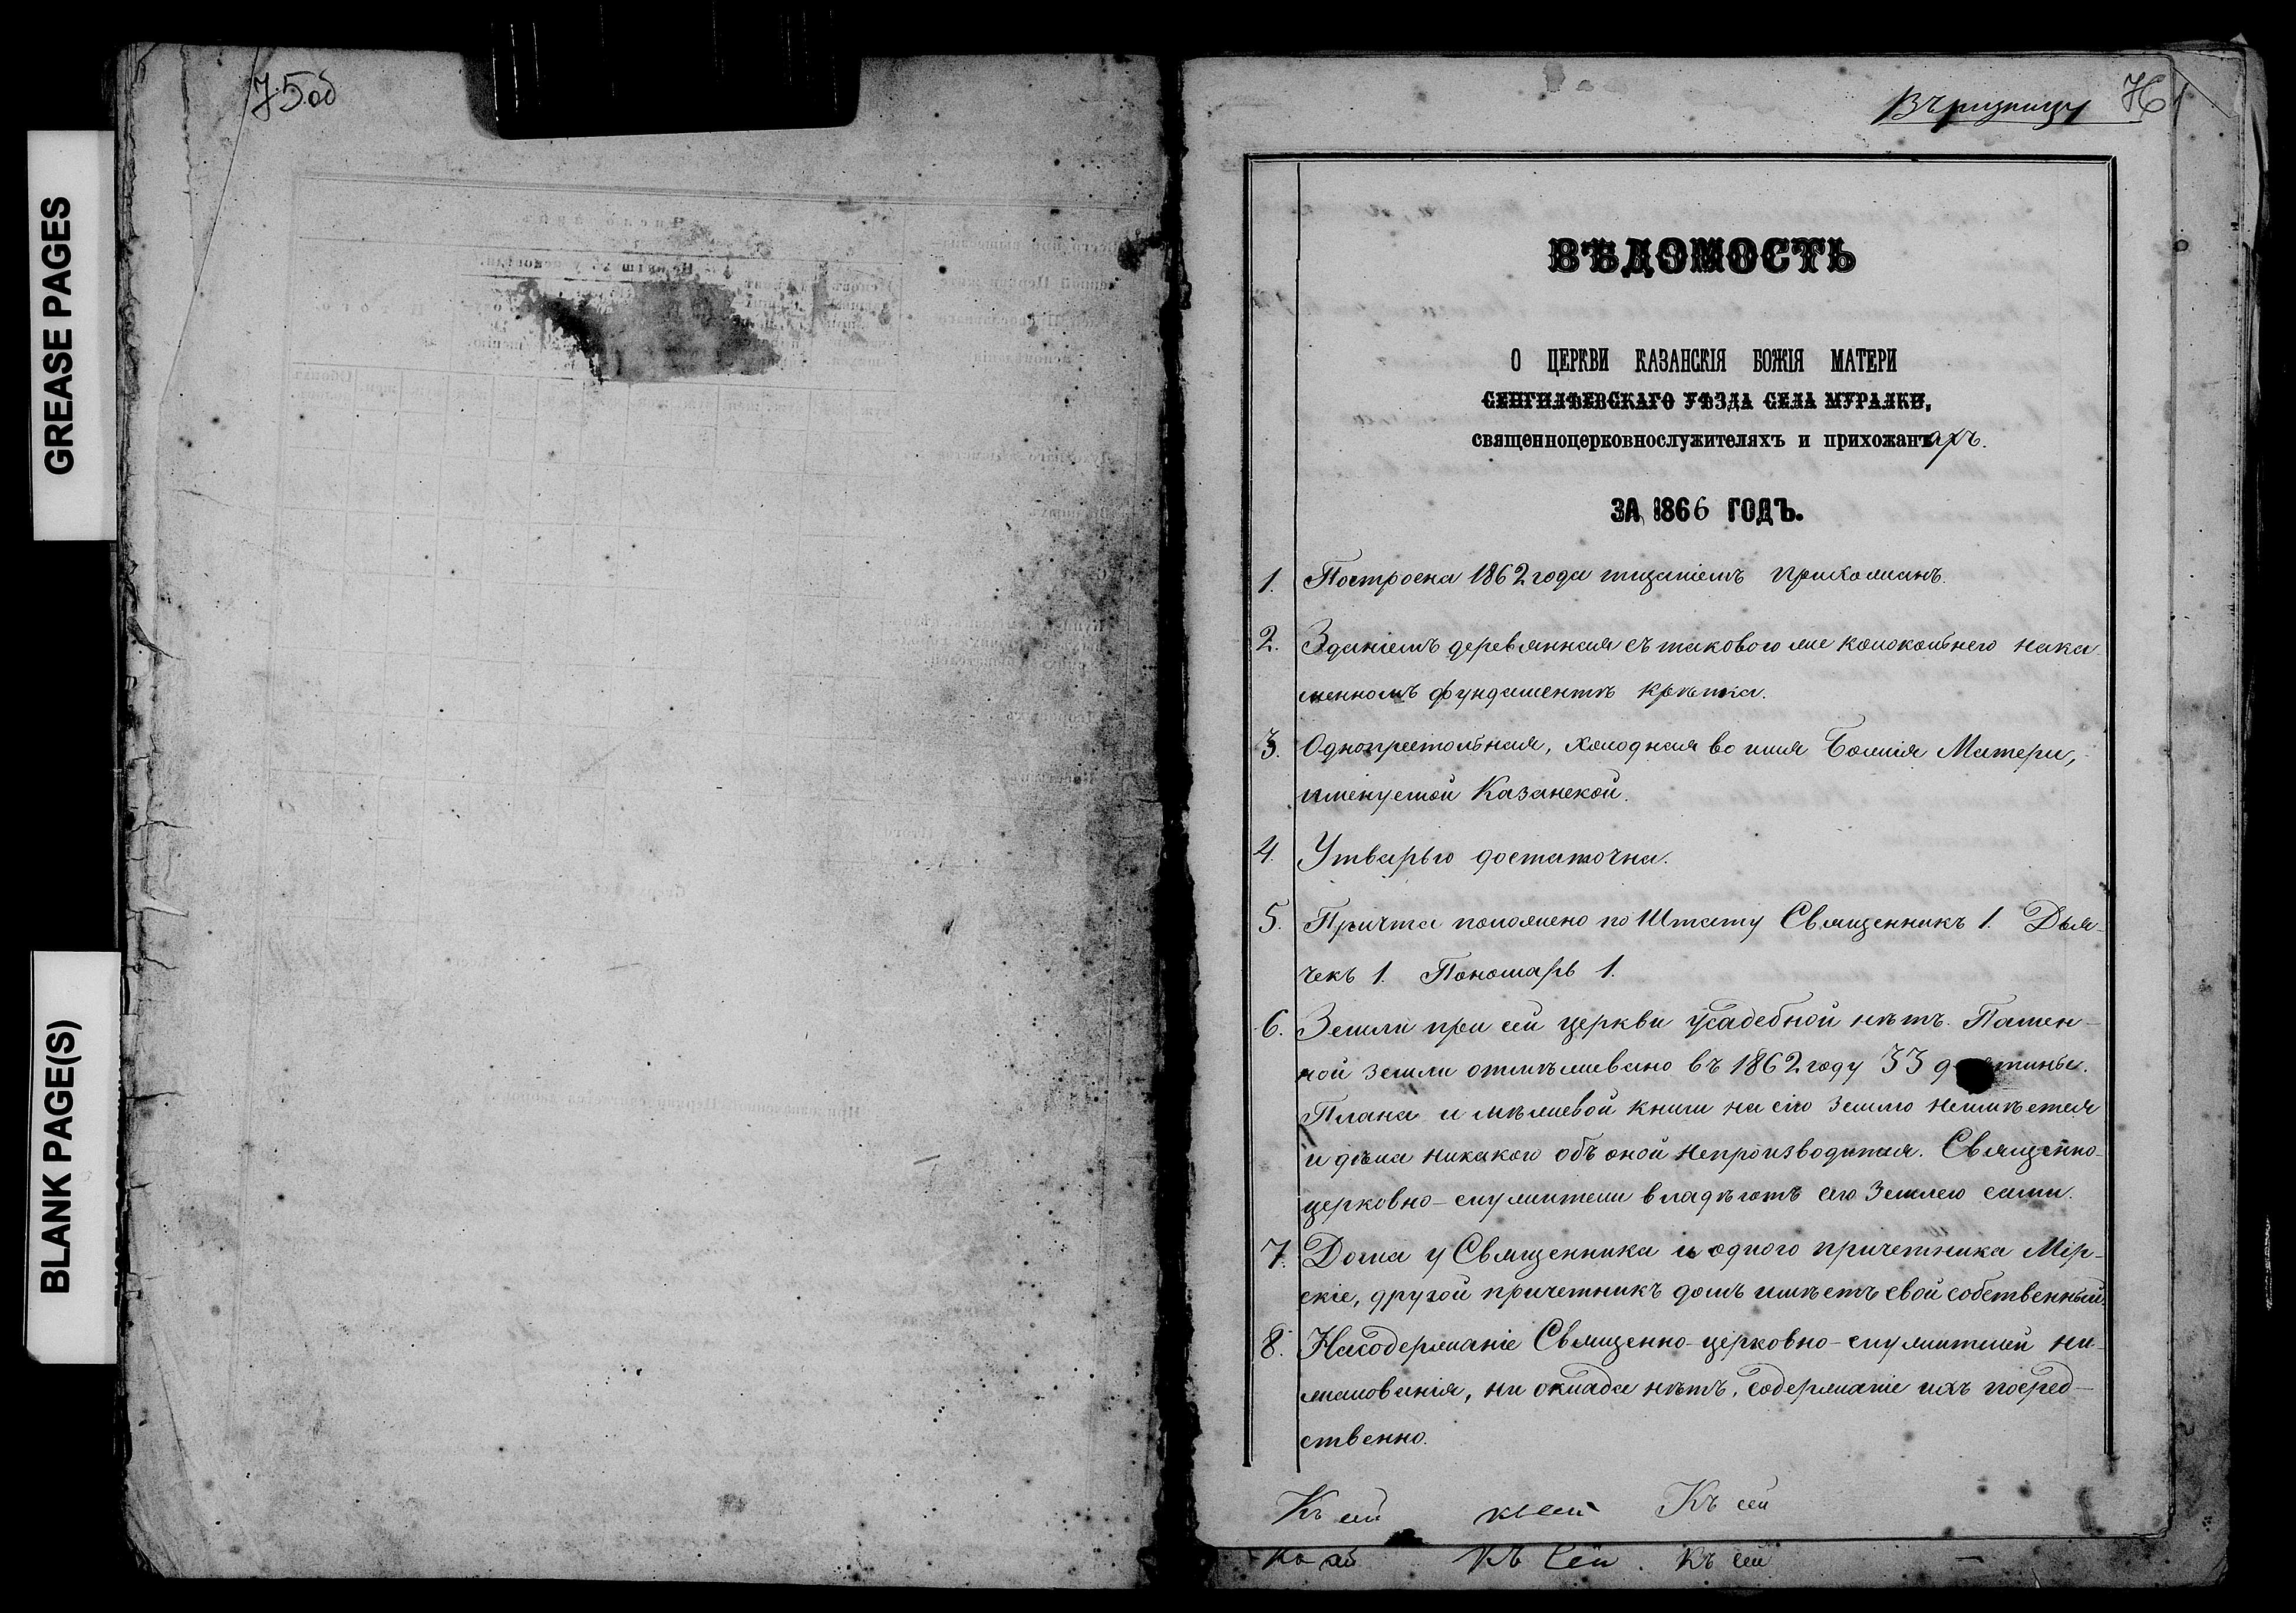 GREASE PAGES
BLANK PAGE(S)
75об
Въ ризницу 76
ВѢДОМОСТЬ
О ЦЕРКВИ КАЗАНСКІЯ БОЖІЯ МАТЕРИ
СЕНГИЛѢЕВСКАГО УѢЗДА СЕЛА МУРАЛКИ,
священноцерковнослужителяхъ и прихожанахъ.
ЗА 1866 ГОДЪ.
1. Построена 1862 года тщаніемъ прихожанъ.
2. Зданіемъ деревянная съ таковою же колокольнею нака-
менномъ фундаментѣ крѣпка.
3. Однопрестольная, холодная во имя Божія Матери,
именуемой Казанской.
4. Утварью достаточна.
5. Причта положено по Штату Священникъ 1. Дья-
чекъ 1. Пономарь 1.
6. Земли при сей церкви усадебной нѣтъ. Пашен-
ной земли отмѣжевано въ 1862 году 33 десятины.
Плана и мѣжевой книги на сію землю неимѣется
и дѣла никакого объ оной непроизводится. Священно-
церковно-служители владѣютъ сею землею сами.
7. Дома у Священника и одного причетника Мір-
скіе, другой причетникъ домъ имѣетъ свой собственный.
8. Насодержаніе Священно-церковно-служителей ни-
жалованія, ни оклада нѣтъ, содержаніе ихъ посред-
ственно.
Къ сей къ сей Къ сей
Къ сей. Къ сей